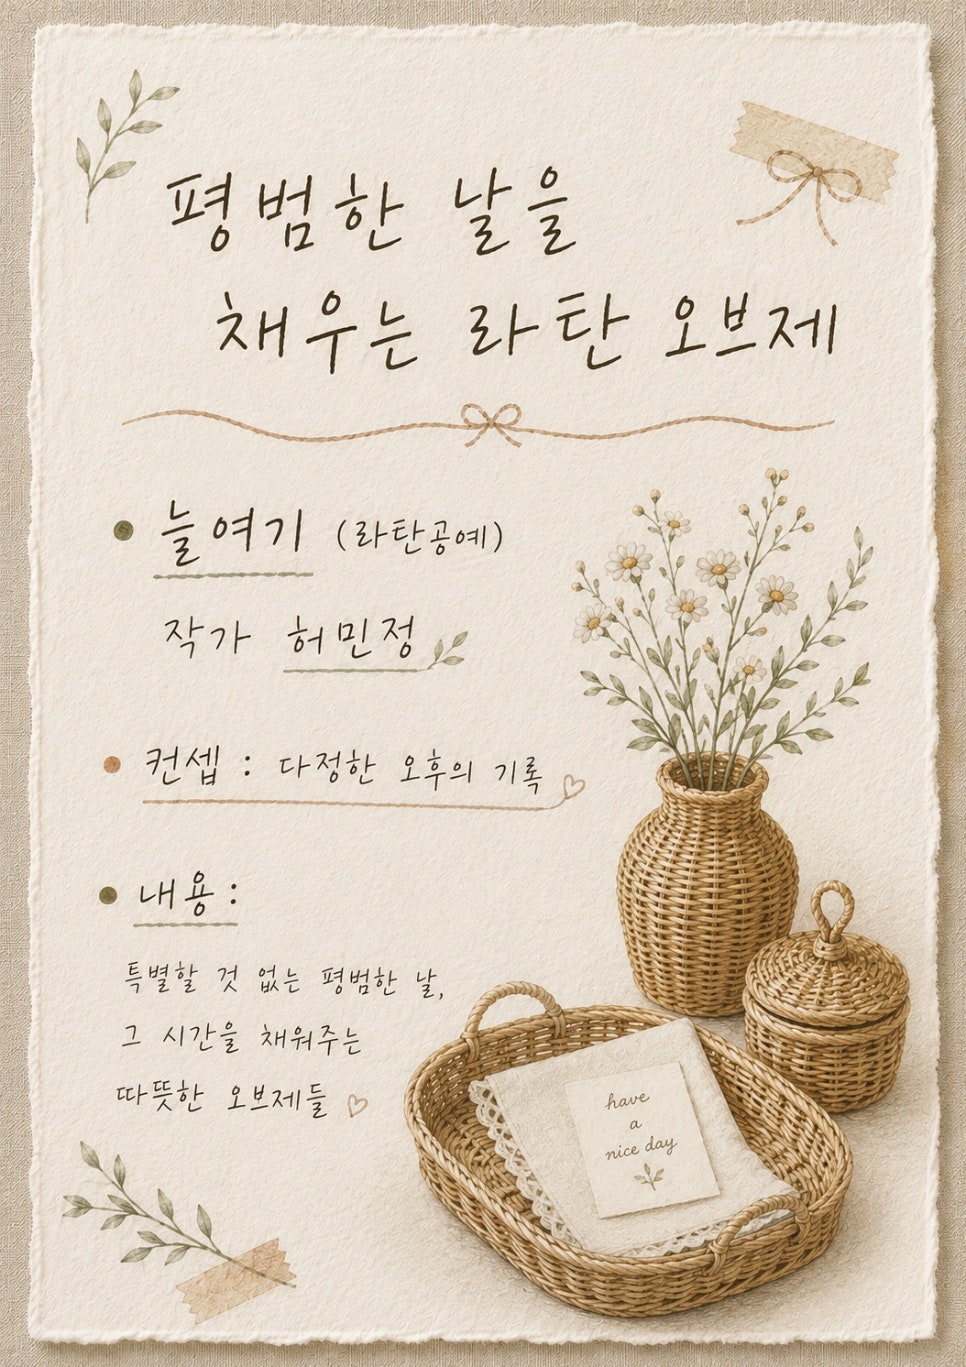 평범한 날을
채우는 라탄 오브제
늘여기 (라탄공예)
작가 허민정
컨셉 : 다정한 오후의 기록
내용 :
특별할 것 없는 평범한 날,
그 시간을 채워주는
따뜻한 오브제들
have
a
nice day